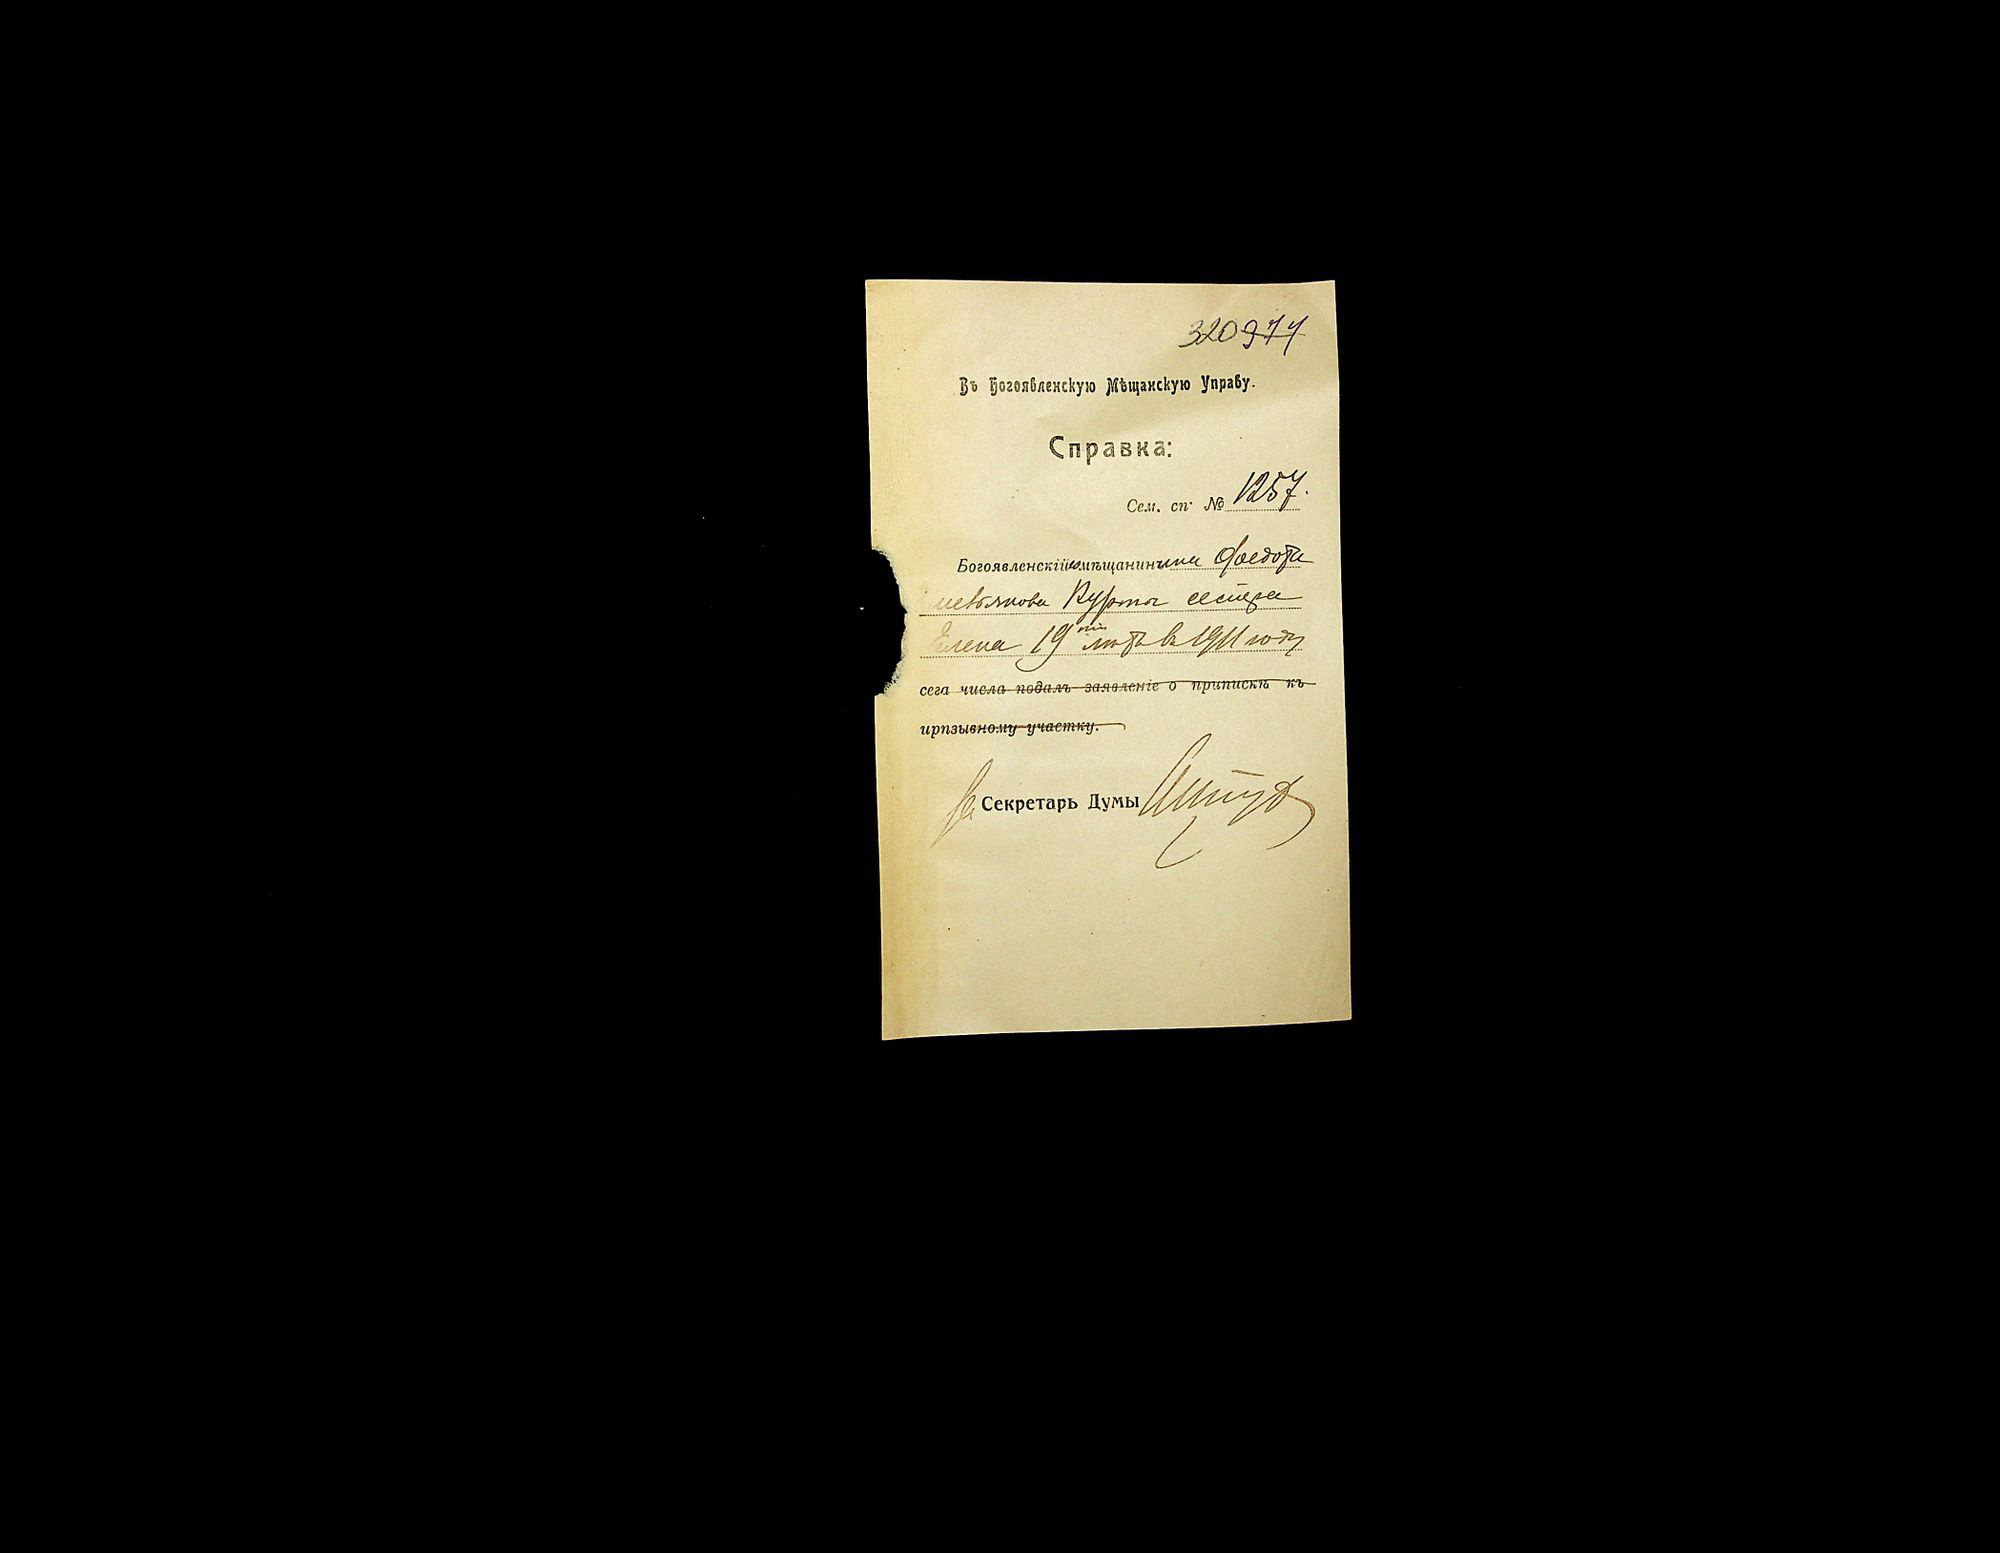 320 977
Въ Богоявленскую Мѣщанскую Управу.
Справка:
Сем. сп. № 1257.
Богоявленскій мѣщанин Федота
Курты сестра
Елена 19 лѣтъ въ 1911 году
сего числа подалъ заявленіе о припискѣ къ
ирпзывному участку.
За Секретарь Думы